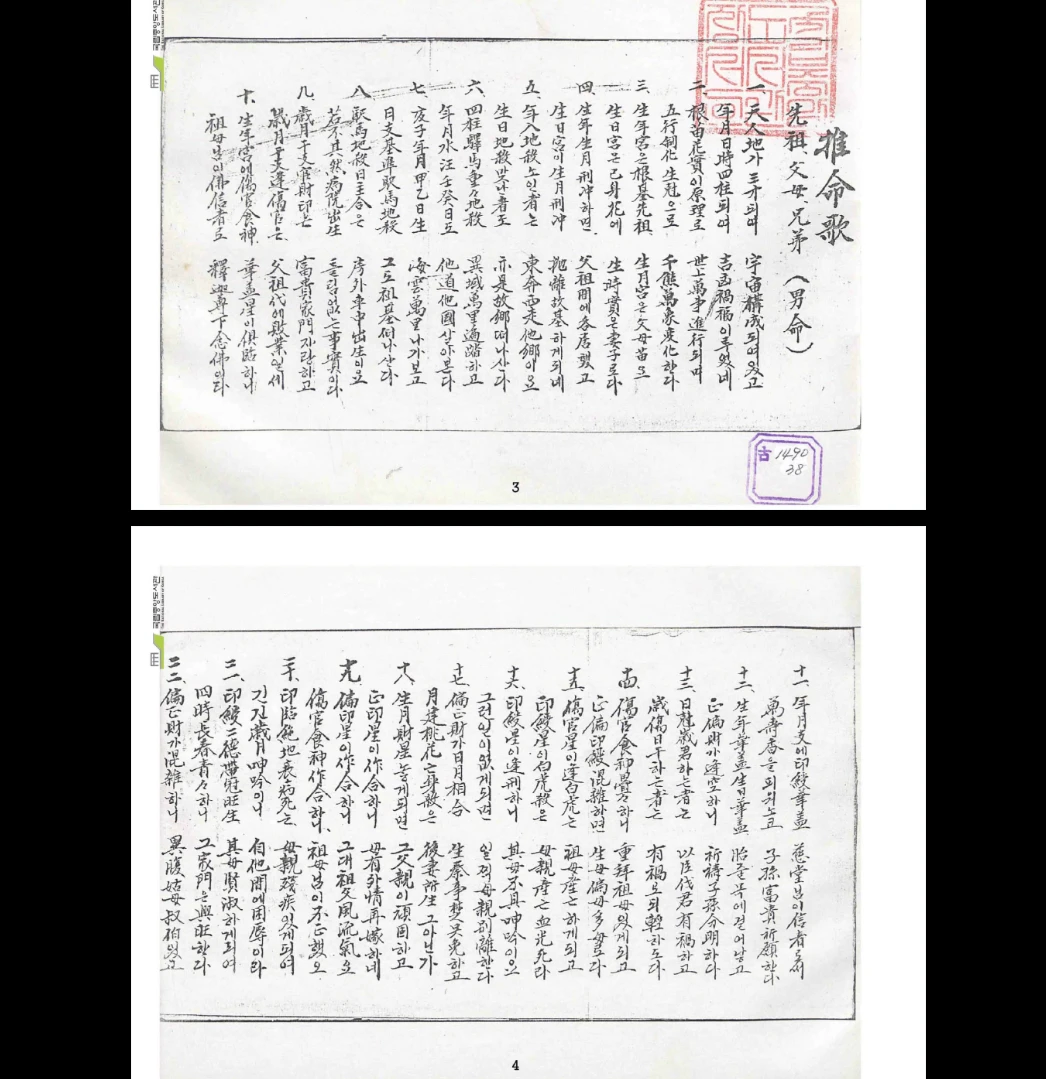 推命歌
先祖、父母、兄弟 (男命)
一、天人地가 三才되며 宇宙構成되여있고
年月日時四柱되며 吉凶禍福이루었네
二、根苗花實이原理로 世上萬事進行되며
五行制化生剋으로 千態萬象変化한다
三、生年宮은根基先祖 生月宮은父母苗요
生日宮은己身花에 生時實은妻子로다
四、生年生月刑冲하면 父祖間에各居했고
生日宮이生月刑冲 離故基하게되네
五、年入地殺노인者는 東奔西走他鄉이요
生日地殺맞난者도 亦是故鄉떠나산다
六、四柱驛馬重々地殺 異域萬里遍踏하고
年月水汪壬癸日도 他道他國살아본다
七、亥子年月甲乙日生 海雲萬里나가보고
日支基準馬地殺 그도祖基떠나산다
八、馬地殺日主合은 房外車中出生이요
若不其然病院出生 틀림없는事實이다
九、歲月干支官財印은 富貴家門자랑하고
歲月干支逢傷官은 父祖代에敗業일세
十、生年宮에傷官食神 華盖星이俱臨하니
祖母님이佛信者로 釋迦尊下念佛이다
古 1490
38
3
十一、年月支에印綬華盖 慈堂님이信者로써
萬壽香을피워노코 子孫富貴祈願한다
十二、生年華盖生日華盖
正偏財가逢空하니 祈禱子孫分明하다
十三、日柱歲君하는者는 以臣伐君有禍하고
歲傷日干하는者는 有禍로되輕하도다
十四、傷官食神疊々하니 重拜祖母있게되고
正偏印綬混雜하면 生母偏母多母로다
十五、傷官星이逢白虎는 祖母産亡하게되고
印綬星의白虎殺은 母親産亡血光死라
十六、印綬星이逢刑하니 其母不具呻吟이요
그런일이없게되면 일찍母親別離한다
十七、偏正財가日月相合
月逢桃花亡身殺은 後妻所生그아닌가
十八、生月財星놓게되면 그父親이頑固하고
正印星이作合하니 母有外情再嫁하네
十九、偏印星이作合하니 그대祖父風流氣요
傷官食神作合하니 祖母님이不正했오
二十、印臨絶地衰病死는 母親殘疾있게되여
긴긴歲月呻吟이니 自他間에困辱이라
二一、印綬二德帶冠旺生 其母賢淑하게되여
四時長春青々하니 그家門은興旺한다
二二、偏正財가混雜하니 異腹姑母叔伯있고
4